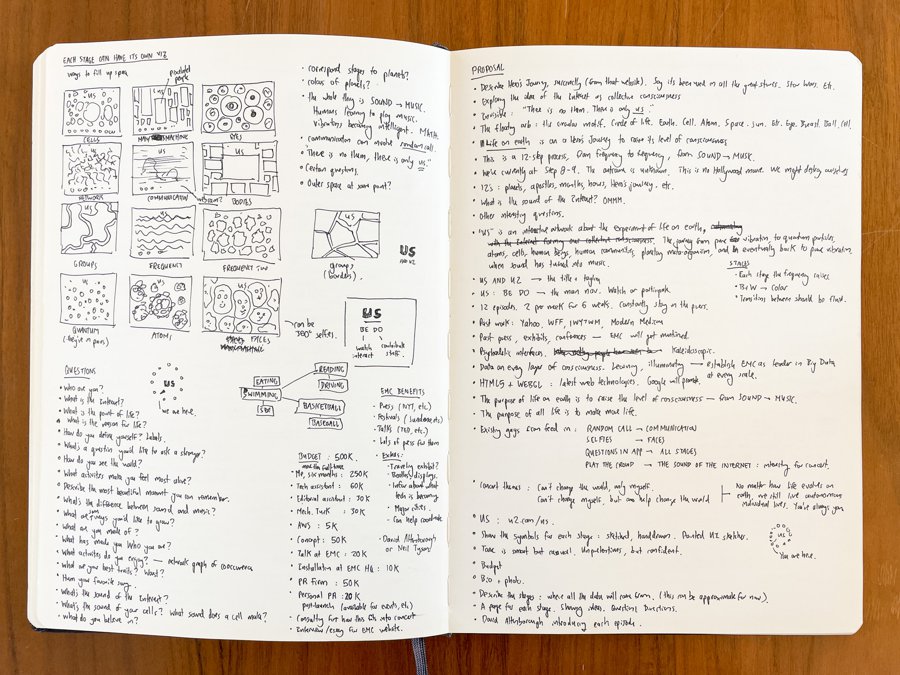 EACH STAGE CAN HAVE ITS OWN VIZ
ways to fill up space
pixelated people
US
CELLS
US
MACHINE
EYES
NETWORK
COMMUNICATION
BODIES
US
GROUPS
US
FREQUENCY
US
FREQUENCY
US
QUANTUM
ATOMS
US
FACES
can be 360° selfies.
• correspond stages to planets?
• colors of planets?
• the whole thing is SOUND → MUSIC.
Humans learning to play music.
vibrations becoming intelligent. MATH.
• communication can involve random call.
• "There is no them, there is only us."
• Certain questions.
• Outer space at some point?
US
groups
(borders).
US
AND U2
US
BE DO
watch
interact
contribute
stuff.
QUESTIONS
• Who are you?
• What is the Internet?
• What is the point of life?
• What is the reason for life?
• How do you define yourself? Labels.
• What's a question you'd like to ask a stranger?
• How do you see the world?
• What activities make you feel most alive?
• Describe the most beautiful moment you can remember.
• What's the difference between sound and music?
• What are ways you'd like to grow?
• What are you made of?
• What has made you who you are?
• What activities do you enjoy? → network graph of concurrence
• What are your best traits? Worst?
• Hum your favorite song.
• What's the sound of the Internet?
• What's the sound of your cells? What sound does a cell make?
• What do you believe in?
US
we are here.
EATING
SWIMMING
READING
DRIVING
BASKETBALL
BASEBALL
BUDGET : 500K
• Me, six months : 250K
• Tech assistant : 60K
• Editorial assistant : 30K
• Mech. Turk : 30K
• AWS : 5K
• Concept : 50K
• Talk at EMC : 20K
• Installation at EMC HQ : 10K
• PR Firm : 50K
• Personal PR : 20K
post-launch (available for events, etc)
• Consulting for how this fits into concert
• Interview/essay for EMC website.
EMC BENEFITS
• Press (NYT, etc.)
• Festivals (Sundance, etc)
• Talks (TED, etc.)
• Lots of press for them
• Extras:
• Traveling exhibit?
• Booths/displays.
• Infor about what tech is becoming
• Major cities.
• Can help coordinate
• David Attenborough
or Neil Tyson?
PROPOSAL
• Describe Hero's Journey, succinctly (from that website). Say it's been used in all the great stories. Star Wars. Etc.
• Exploring the idea of the Internet as collective consciousness
• Invisible : "There is no them. There is only us."
• The floating orb : the circular motif. Circle of life. Earth. Cell. Atom. Space. Sun. Etc. Eye. Breast. Ball. Cell.
• Life on earth is on a Hero's Journey to raise its level of consciousness
• This is a 12-step process, from frequency to frequency, from SOUND → MUSIC.
• We're currently at Step 8-9. The outcome is unknown. This is no Hollywood movie. We might destroy ourselves
• 12s : planets, apostles, months, hours, Hero's journey. etc.
• What is the sound of the Internet? OMMM.
• Other interesting questions.
• "US" is an interactive artwork about the experiment of life on earth,
with the Internet forming our collective consciousness. The journey from pure vibration, to quantum particles,
atoms, cells, human beings, human communities, planetary micro-organism, and eventually back to pure vibration,
when sound has turned into music.
• US AND U2 → the title + tagline
• US : BE DO → the main nav. Watch or participate.
• 12 episodes. 2 per week for 6 weeks. Constantly stay in the press.
STAGES
• Each stage the frequency raises.
• B+W → Color
• Transition between should be fluid.
• Past work : Yahoo, WFF, IWTYWM, Modern Medicine
• Past press, exhibits, conferences → EMC will get mentioned.
• Psychedelic interfaces. Kaleidoscopic.
• Data on every layer of consciousness. Learning, illuminating → establish EMC as leader in Big Data
at every scale.
• HTML5 + WEBGL : latest web technologies. Google will promote.
• The purpose of life on earth is to raise the level of consciousness — from SOUND → MUSIC.
• The purpose of all life is to make more life.
• Existing gags from feed in : RANDOM CALL → COMMUNICATION
SELFIES → FACES
QUESTIONS IN APP → ALL STAGES
PLAY THE CROWD → THE SOUND OF THE INTERNET : intensity for concert.
• Concert themes : Can't change the world, only myself.
Can't change myself, but can help change the world
No matter how life evolves on
earth, we still live autonomous
individual lives. You're always you
• US : u2.com/us.
• Show the symbols for each stage : sketched, handdrawn. Pointed U2 sketches.
• Tone is smart but casual. Unpretentious, but confident.
• Budget
• Bio + photo.
US
You are here.
• Describe the stages : where all the data will come from. (This can be approximate for now).
• A page for each stage, showing video, Questions, Directions.
• David Attenborough introducing each episode.